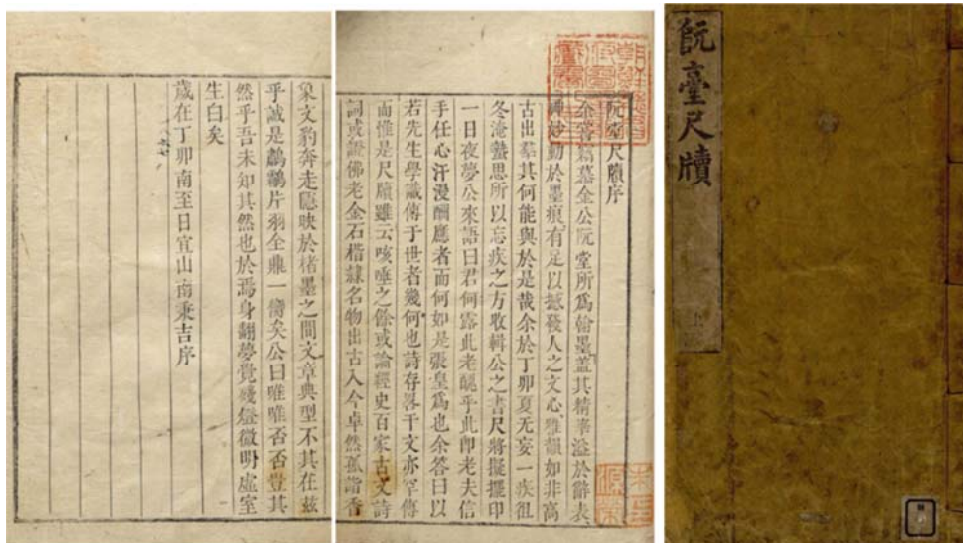 阮臺尺牘
上
阮堂尺牘序
余嘗竊慕金公阮堂所爲翰墨盖其精華溢於辭表
神妙動於墨痕有足以撼發人之文心雅韻如非高
古出羣其何能與於是哉余於丁卯夏无妄一疾徂
冬淹蟄思所以忘疾之方收輯公之書尺將擬擺印
一日夜夢公來語曰君何露此老醜乎此卽老夫信
手任心汗漫酬應者而何如是張皇爲也余答曰以
若先生學識傳于世者幾何也詩存畧干文亦罕傳
而惟是尺牘雖云咳唾之餘或論經史百家古文詩
詞或證佛老金石楷隸名物出古入今卓然孤諧香
象文豹奔走映於楮墨之間文章典型不其在兹
乎誠是片羽全鼎一臠矣公曰唯唯否否豈其
然乎吾未知其然也於焉身翻夢覺殘燈微明虛室
生白矣
歲在丁卯南至日宜山南秉吉序